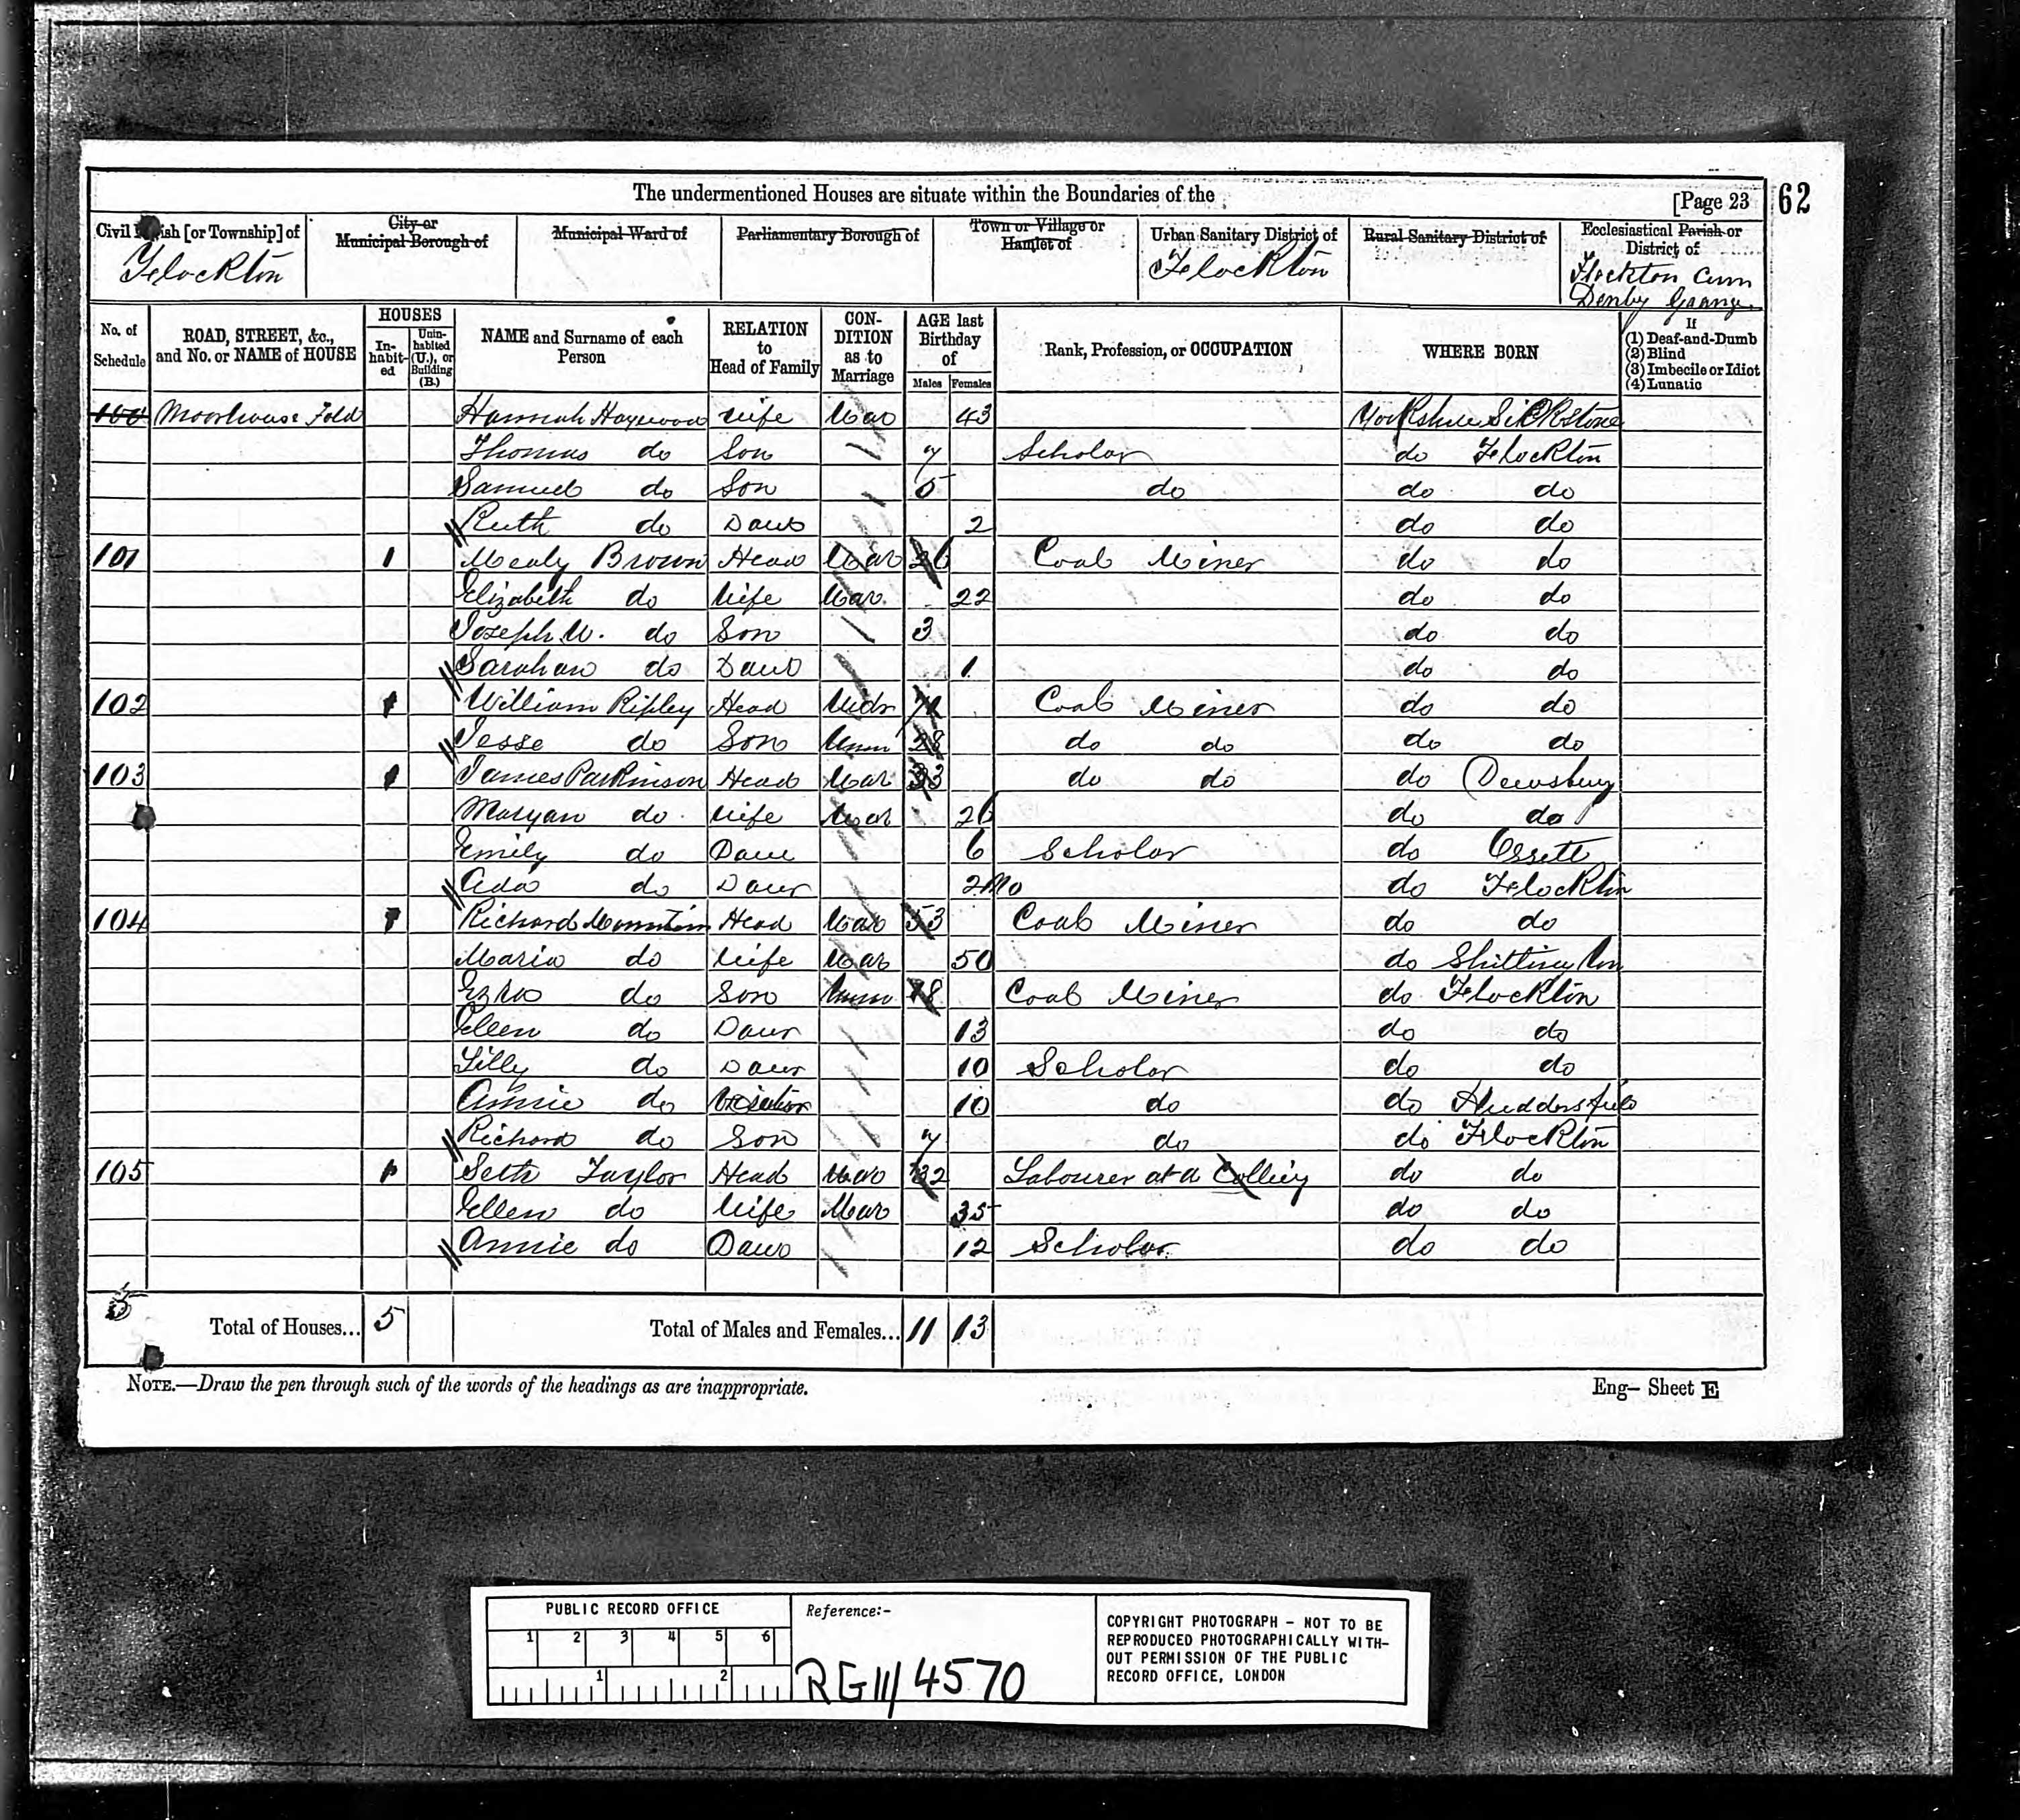 The undermentioned Houses are situate within the Boundaries of the [Page 23 62
Civil Parish [or Township] of City or Municipal Borough of Municipal Ward of Parliamentary Borough of Town or Village or Hamlet of Urban Sanitary District of Rural Sanitary District of Ecclesiastical Parish or District of
Flockton Flockton Flockton Cum Denby Grange
No. of Schedule ROAD, STREET, &c., and No. or NAME of HOUSE HOUSES Inhabited Uninhabited (U.), or Building (B.) NAME and Surname of each Person RELATION to Head of Family CONDITION as to Marriage AGE last Birthday of Males Females Rank, Profession, or OCCUPATION WHERE BORN If (1) Deaf-and-Dumb (2) Blind (3) Imbecile or Idiot (4) Lunatic
100 Moorhouse Fold Hannah Haywood Wife Mar 43 Yorkshire Silkstone
Thomas do Son 7 Scholar do Flockton
Samuel do Son 5 do do do
Ruth do Daur 2 do do
101 1 Brown Head Mar 26 Coal Miner do do
Elizabeth do Wife Mar 22 do do
Joseph W. do Son 3 do do
Sarahan do Daur 1 do do
102 1 William Ripley Head Widr Coal Miner do do
Jesse do Son Unm 28 do do do do
103 1 James Parkinson Head Mar 33 do do do Dewsbury
Maryan do Wife Mar 26 do do
Emily do Daur 6 Scholar do Ossett
Ada do Daur 2 Mo do Flockton
104 1 Richard Mountain Head Mar 53 Coal Miner do do
Maria do Wife Mar 50 do
Ezra do Son Unm 18 Coal Miner do Flockton
Ellen do Daur 13 do do
Lilly do Daur 10 Scholar do do
Annie do Visitor 10 do do Huddersfield
Richard do Son 7 do do Flockton
105 1 Seth Taylor Head Mar 32 Labourer at a Colliery do do
Ellen do Wife Mar 35 do do
Annie do Daur 12 Scholar do do
5 Total of Houses... 5 Total of Males and Females... 11 13
NOTE.—Draw the pen through such of the words of the headings as are inappropriate. Eng— Sheet E
PUBLIC RECORD OFFICE
1 2 3 4 5 6
1 2
Reference:-
RG 11/4570
COPYRIGHT PHOTOGRAPH – NOT TO BE
REPRODUCED PHOTOGRAPHICALLY WITH-
OUT PERMISSION OF THE PUBLIC
RECORD OFFICE, LONDON